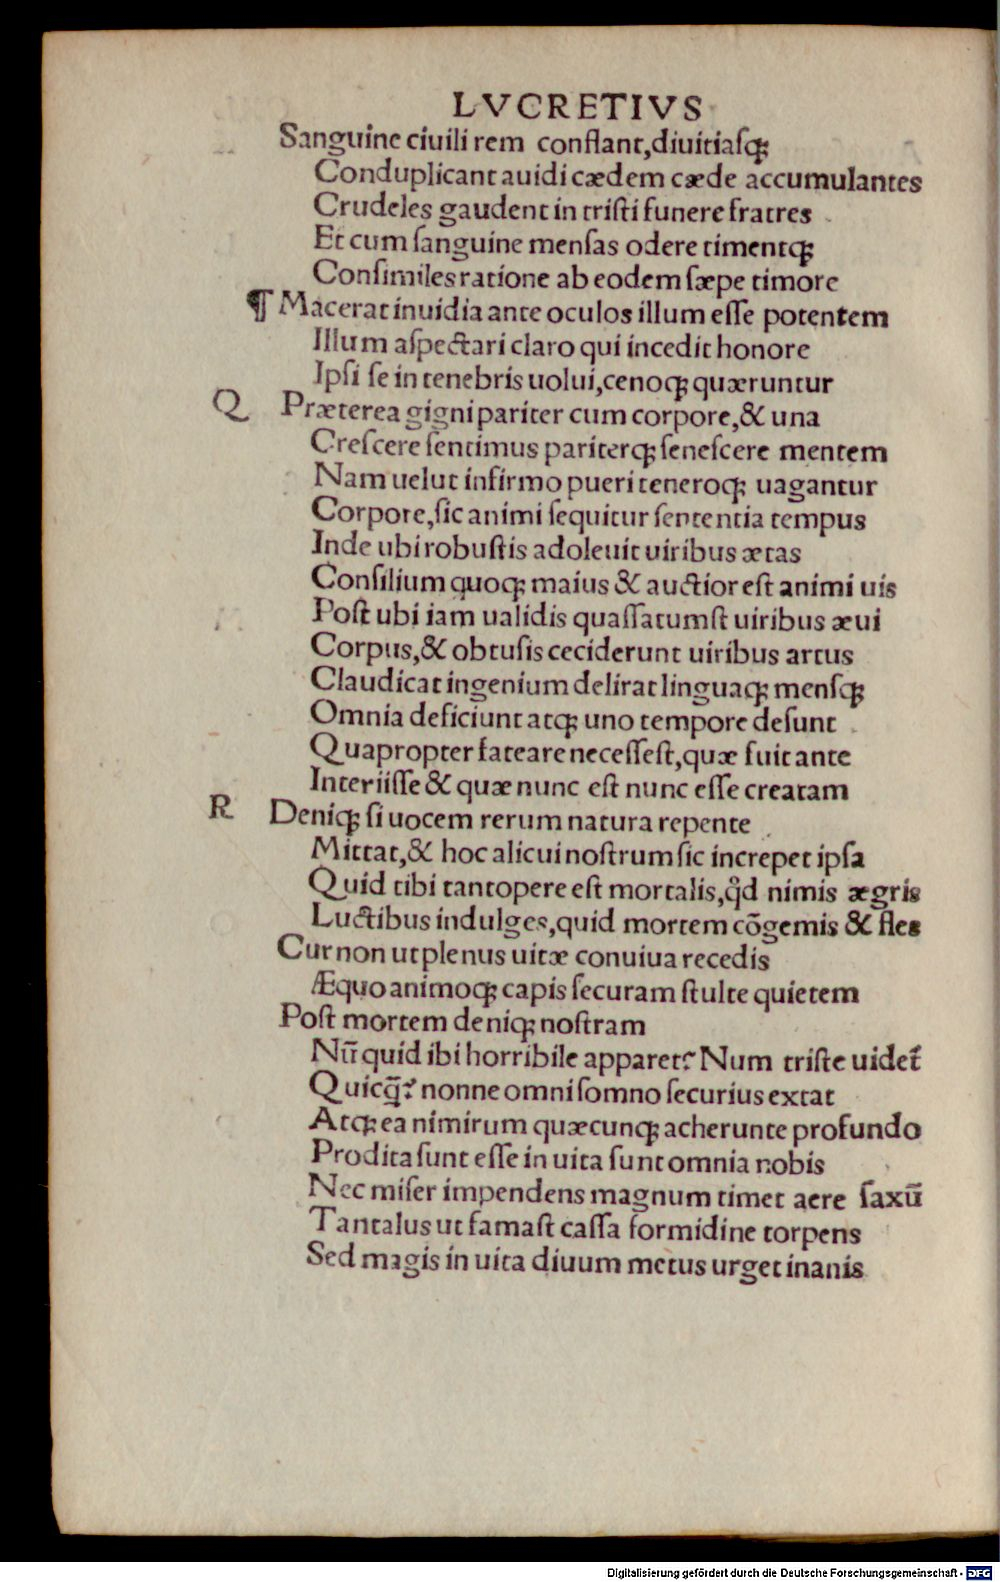 LVCRETIVS
Sanguine ciuili rem conflant,diuitiasꝙ
Conduplicant auidi cædem cæde accumulantes
Crudeles gaudent in tristi funere fratres .
Et cum sanguine mensas odere timentꝙ
Consimiles ratione ab eodem sæpe timore
¶ Macerat inuidia ante oculos illum esse potentem
Illum aspectari claro qui incedit honore
Ipsi se in tenebris uolui,cenoꝙ quæruntur
Q Præterea gigni pariter cum corpore,& una
Crescere sentimus pariterꝙ senescere mentem
Nam uelut infirmo pueri teneroꝙ uagantur
Corpore,sic animi sequitur sententia tempus
Inde ubi robustis adoleuit uiribus ætas
Consilium quoꝙ maius & auctior est animi uis
Post ubi iam ualidis quassatumst uiribus æui
Corpus,& obtusis ceciderunt uiribus artus
Claudicat ingenium delirat linguaꝙ mensꝙ
Omnia deficiunt atꝙ uno tempore desunt .
Quapropter fateare necessest,quæ fuit ante
Interiisse & quæ nunc est nunc esse creatam
R Deniꝙ si uocem rerum natura repente .
Mittat,& hoc alicui nostrum sic increpet ipsa
Quid tibi tantopere est mortalis,qͥd nimis ægris
Luctibus indulges,quid mortem cõgemis & fles
Cur non ut plenus uitæ conuiua recedis
Æquo animoꝙ capis securam stulte quietem
Post mortem deniꝙ nostram
Nū quid ibi horribile apparet? Num triste uidet᷑
Quicq̄? nonne omni somno securius extat
Atꝙ ea nimirum quæcunꝙ acherunte profundo
Prodita sunt esse in uita sunt omnia nobis
Nec miser impendens magnum timet aere saxū
Tantalus ut famast cassa formidine torpens
Sed magis in uita diuum metus urget inanis
Digitalisierung gefördert durch die Deutsche Forschungsgemeinschaft - DFG